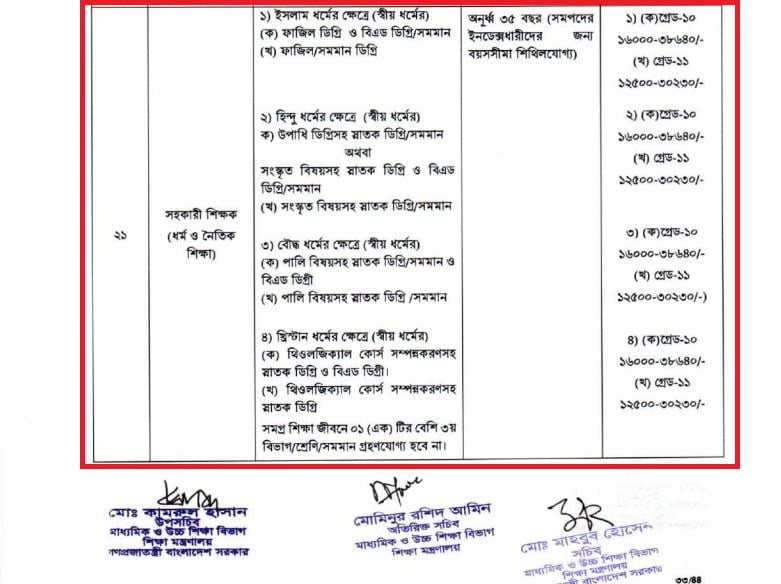 ২১
সহকারী শিক্ষক
(ধর্ম ও নৈতিক
শিক্ষা)
১) ইসলাম ধর্মের ক্ষেত্রে (স্বীয় ধর্মের)
(ক) ফাজিল ডিগ্রি ও বিএড ডিগ্রি/সমমান
(খ) ফাজিল/সমমান ডিগ্রি
২) হিন্দু ধর্মের ক্ষেত্রে (স্বীয় ধর্মের)
ক) উপাধি ডিগ্রিসহ স্নাতক ডিগ্রি/সমমান
অথবা
সংস্কৃত বিষয়সহ স্নাতক ডিগ্রি ও বিএড
ডিগ্রি/সমমান
(খ) সংস্কৃত বিষয়সহ স্নাতক ডিগ্রি/সমমান
৩) বৌদ্ধ ধর্মের ক্ষেত্রে (স্বীয় ধর্মের)
(ক) পালি বিষয়সহ স্নাতক ডিগ্রি/সমমান ও
বিএড ডিগ্রী
(খ) পালি বিষয়সহ স্নাতক ডিগ্রি /সমমান
৪) খ্রিস্টান ধর্মের ক্ষেত্রে (স্বীয় ধর্মের)
(ক) থিওলজিক্যাল কোর্স সম্পন্নকরণসহ
স্নাতক ডিগ্রি ও বিএড ডিগ্রী।
(খ) থিওলজিক্যাল কোর্স সম্পন্নকরণসহ
স্নাতক ডিগ্রি
সমগ্র শিক্ষা জীবনে ০১ (এক) টির বেশি ৩য়
বিভাগ/শ্রেণি/সমমান গ্রহণযোগ্য হবে না।
অনূর্ধ্ব ৩৫ বছর (সমপদের
ইনডেক্সধারীদের জন্য
বয়সসীমা শিথিলযোগ্য)
১) (ক)গ্রেড-১০
১৬০০০-৩৮৬৪০/-
(খ) গ্রেড-১১
১২৫০০-৩০২৩০/-
২) (ক)গ্রেড-১০
১৬০০০-৩৮৬৪০/-
(খ) গ্রেড-১১
১২৫০০-৩০২৩০/-
৩) (ক)গ্রেড-১০
১৬০০০-৩৮৬৪০/-
(খ) গ্রেড-১১
১২৫০০-৩০২৩০/-)
৪) (ক)গ্রেড-১০
১৬০০০-৩৮৬৪০/-
(খ) গ্রেড-১১
১২৫০০-৩০২৩০/-
মোঃ কামরুল হাসান
উপসচিব
মাধ্যমিক ও উচ্চ শিক্ষা বিভাগ
শিক্ষা মন্ত্রণালয়
গণপ্রজাতন্ত্রী বাংলাদেশ সরকার
মোমিনুর রশিদ আমিন
অতিরিক্ত সচিব
মাধ্যমিক ও উচ্চ শিক্ষা বিভাগ
শিক্ষা মন্ত্রণালয়
মোঃ মাহবুব হোসেন
সচিব
মাধ্যমিক ও উচ্চ শিক্ষা বিভাগ
শিক্ষা মন্ত্রণালয়
বাংলাদেশ সরকার
৩৩/৪৪